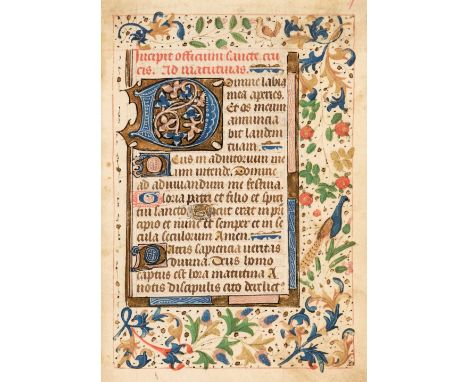 Incipit officium sancte cru
cis. Ad matutinas.
Domine labia
mea aperies.
Et os meum
annuncia
bit laudem
tuam.
Deus in adiutorium me
um intende. Domine
ad adiuvandum me festina.
Gloria patri et filio et spiri
tui sancto. Sicut erat in prin
cipio et nunc et semper et in se
cula seculorum Amen.
Patris sapiencia veritas
divina. Deus homo
captus est hora matutina A
notis discipulis cito derelict